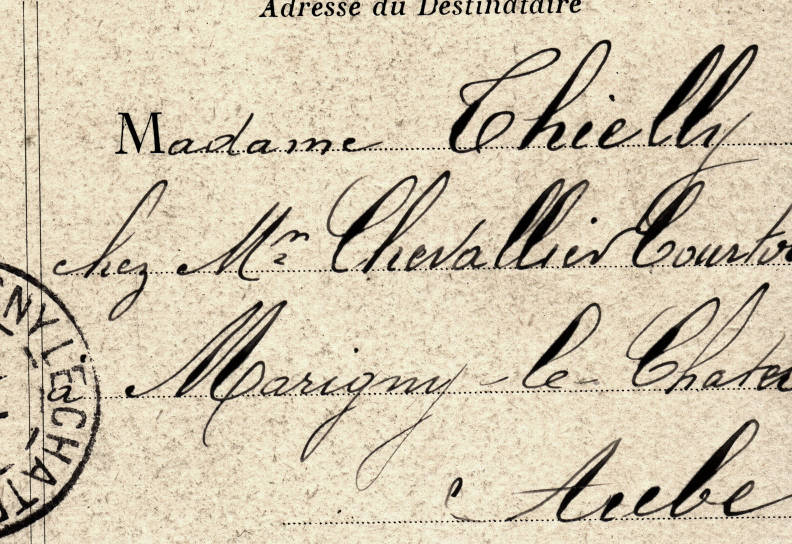 Adresse du Destinataire
Madame Thielly
chez Mr Chevallier
à Marigny-le-
Aube
NY LE CHAT